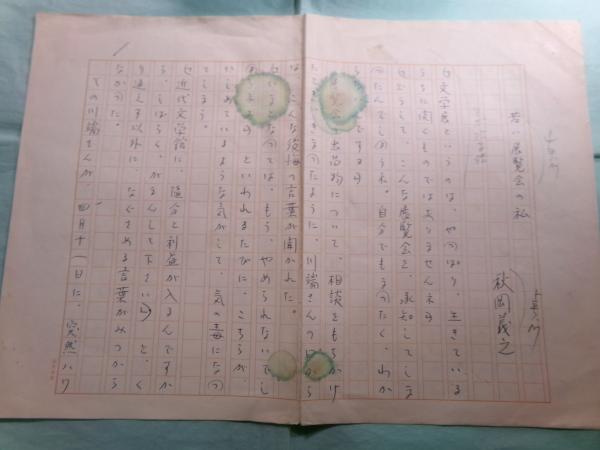 展覧会の私
秋岡義之
「文学展というのは、やっぱり、生きている
うちに開くものではありませんネ」
「どうして、こんな展覧会を、承知してしま
ったんでしょうネ。自分でもまったく、わか
ですヨ」
出品物について、相談をもちかけ
きまったように、川端さんの口から
は、こんな後悔の言葉が聞かれた。
なっては、もう、やめられないでし
といわれるたびに、こちらが、
いじめているような気がして、気の毒になっ
てしまう。
「近代文学館に、随分と利益が入るんですか
ら、しばらく、がまんして下さい」と、く
り返えす以外に、なぐさめる言葉がみつから
なかった。
その川端さんが、四月十一日に、突然ハワ